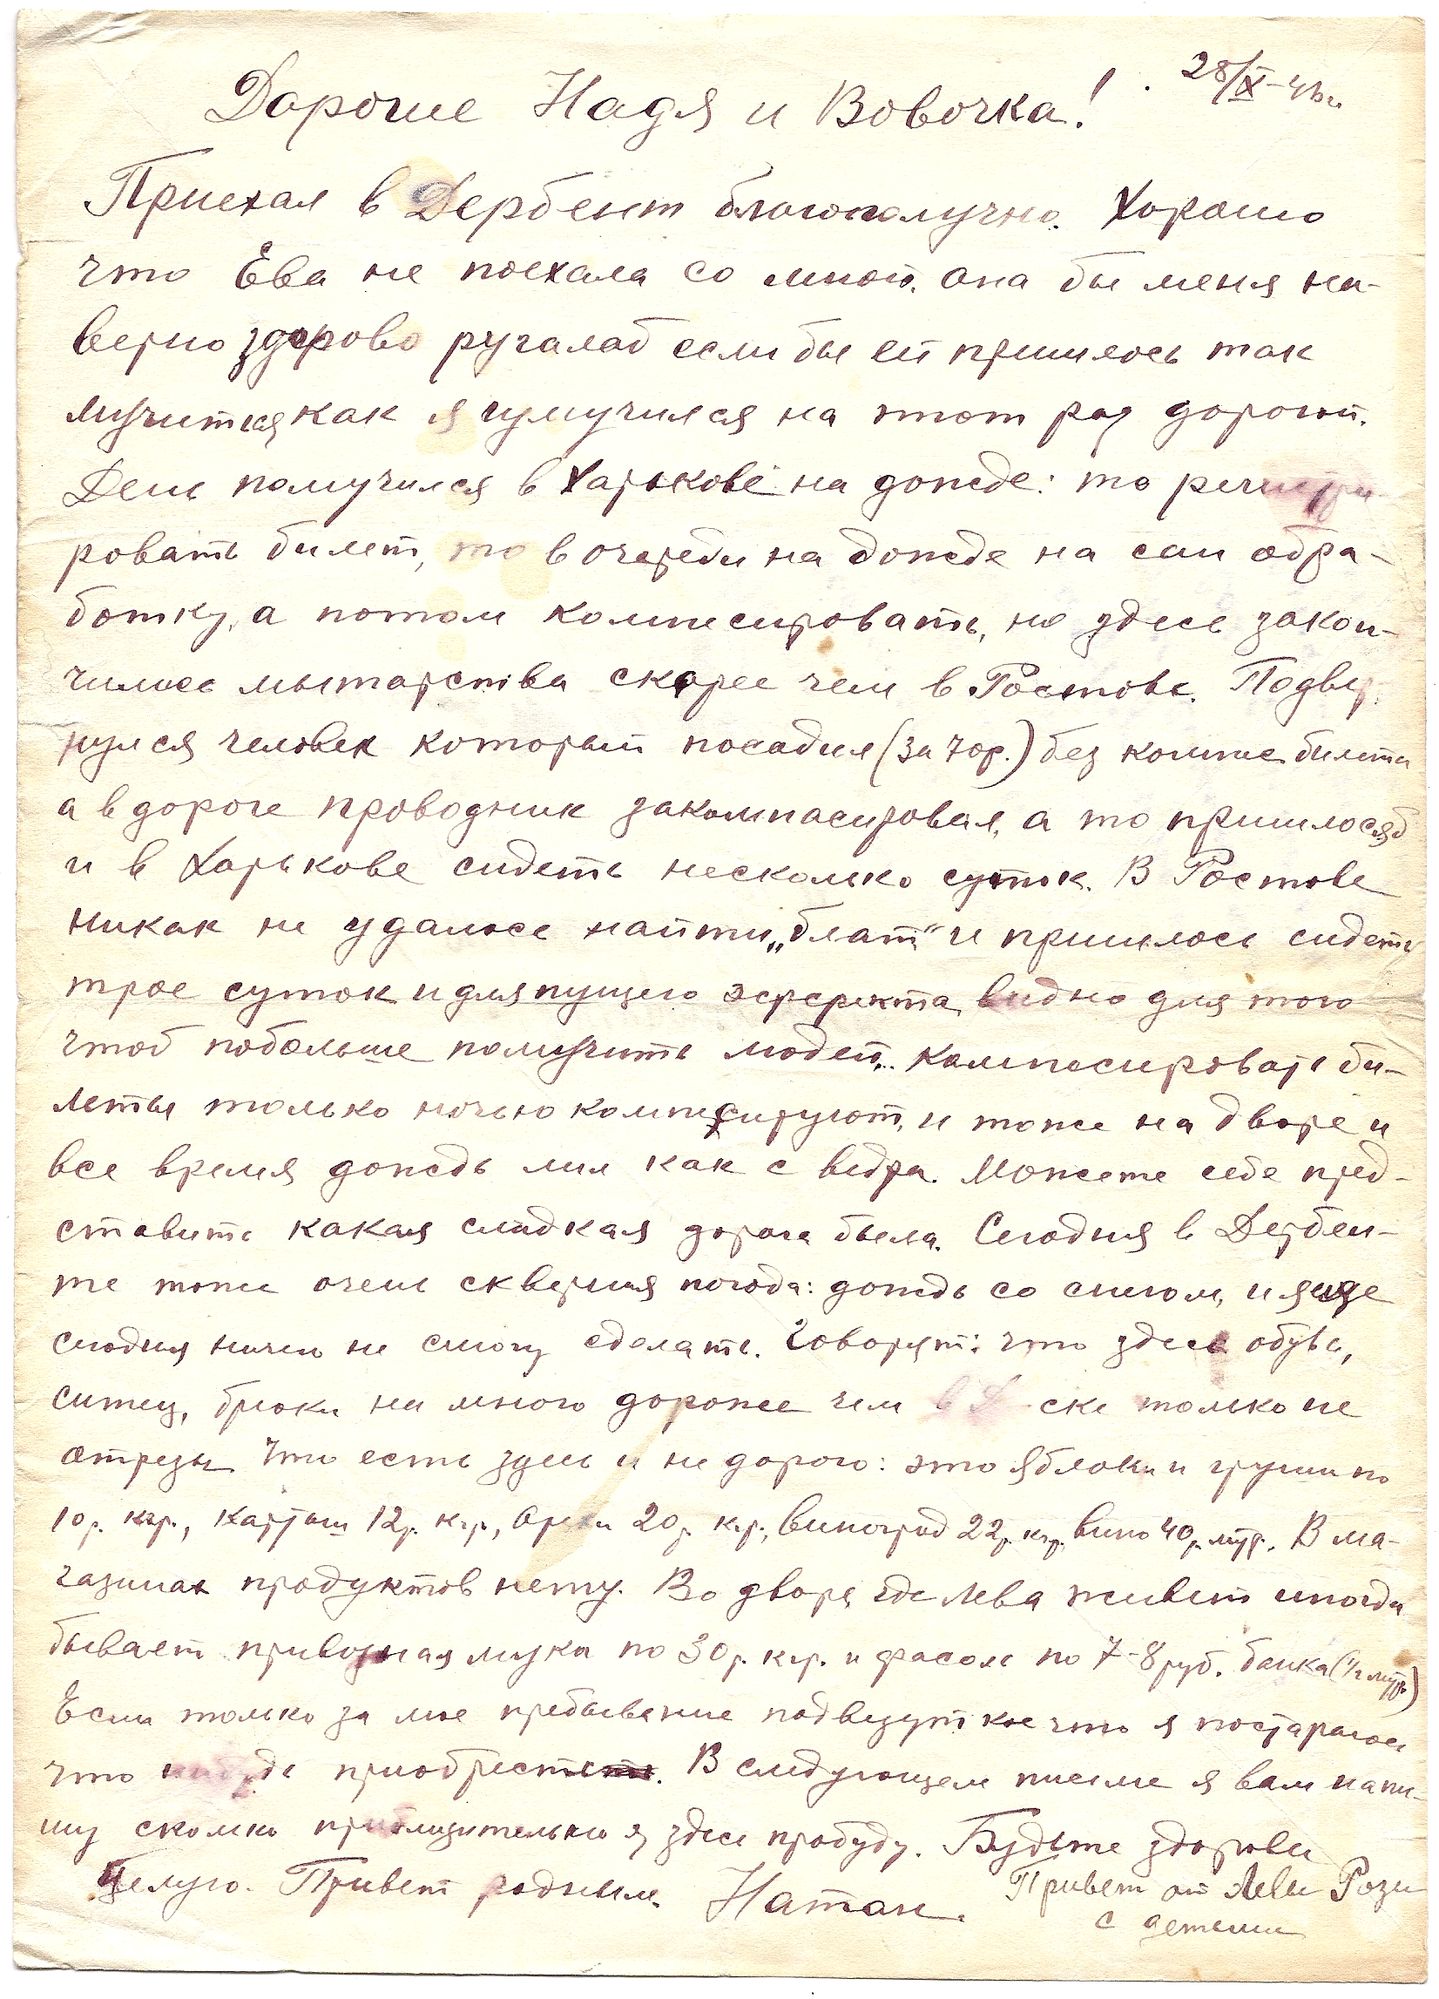 28/X-
Дорогие Надя и Вовочка!
Приехал в Дербент благополучно. Хорошо
что Ева не поехала со мной, она бы меня на-
верно здорово ругалаб если бы ей пришлось так
мучиться как я измучился на этот раз дорогой.
День помучился в Харькове на дожде: то регистри-
ровать билет, то в очереди на дожде на сан обра-
ботку, а потом компосировать, но здесь закон-
чилось мытарства скорее чем в Ростове. Подвер-
нулся человек который посадил (за 70р.) без компос билета
а в дороге проводник закомпасировал, а то пришлосяб
и в Харькове сидеть несколько суток. В Ростове
никак не удалось найти „блат“ и пришлось сидеть
трое суток и для пущего эффекта, видно для того
чтоб побольше помучить людей, компосировать би-
леты только ночью компосируют, и тоже на дворе и
все время дождь лил как с ведра. Можете себе пред-
ставить какая сладкая дорога была. Сегодня в Дербен-
те тоже очень скверная погода: дождь со снегом, и я еще
сегодня ничего не смогу сделать. Говорят: что здесь обувь,
ситец, брюки на много дороже чем в ске только не
отрезы. Что есть здесь и не дорого: это яблоки и груши по
10р. кгр., картош 12р. кгр., орехи 20р. кгр., виноград 22р. кгр. вино 40р. литр. В ма-
газинах продуктов нету. Во дворе, где Лева живет иногда
бывает привозная мука по 30р. кгр. и фасоль по 7-8руб. банка (1/2 литр)
Если только за мое пребывание подвезут кое что я постараюсь
что нибудь приобрести. В следующем письме я вам напи-
шу сколько приблизительно я здесь пробуду. Будьте здоровы
Целую. Привет родным. Натан. Привет от Левы Розы
с детьми